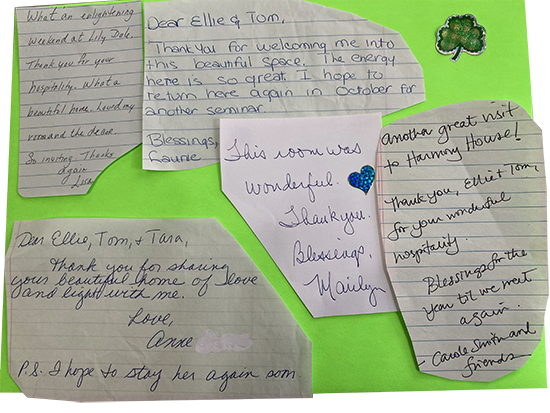 What an enlightening
weekend at Lily Dale.
Thank you for your
hospitality. What a
beautiful home. Loved my
room and the decor
So inviting Thanks
again
Lisa
Dear Ellie & Tom,
Thank You for welcoming me into
this beautiful space. The energy
here is so great. I hope to
return here again in October for
another seminar.
Blessings,
Laurie
This room was
wonderful.
Thank you.
Blessings,
Marilyn
another great visit
to Harmony House!
Thank you, Ellie & Tom,
for your wonderful
hospitality.
Blessings for the
year til we meet
again.
- Carole Smith and
friends
Dear Ellie, Tom, & Tara,
Thank you for sharing
your beautiful home of love
and light with me.
Love,
Anne
P.S. I hope to stay her again soon